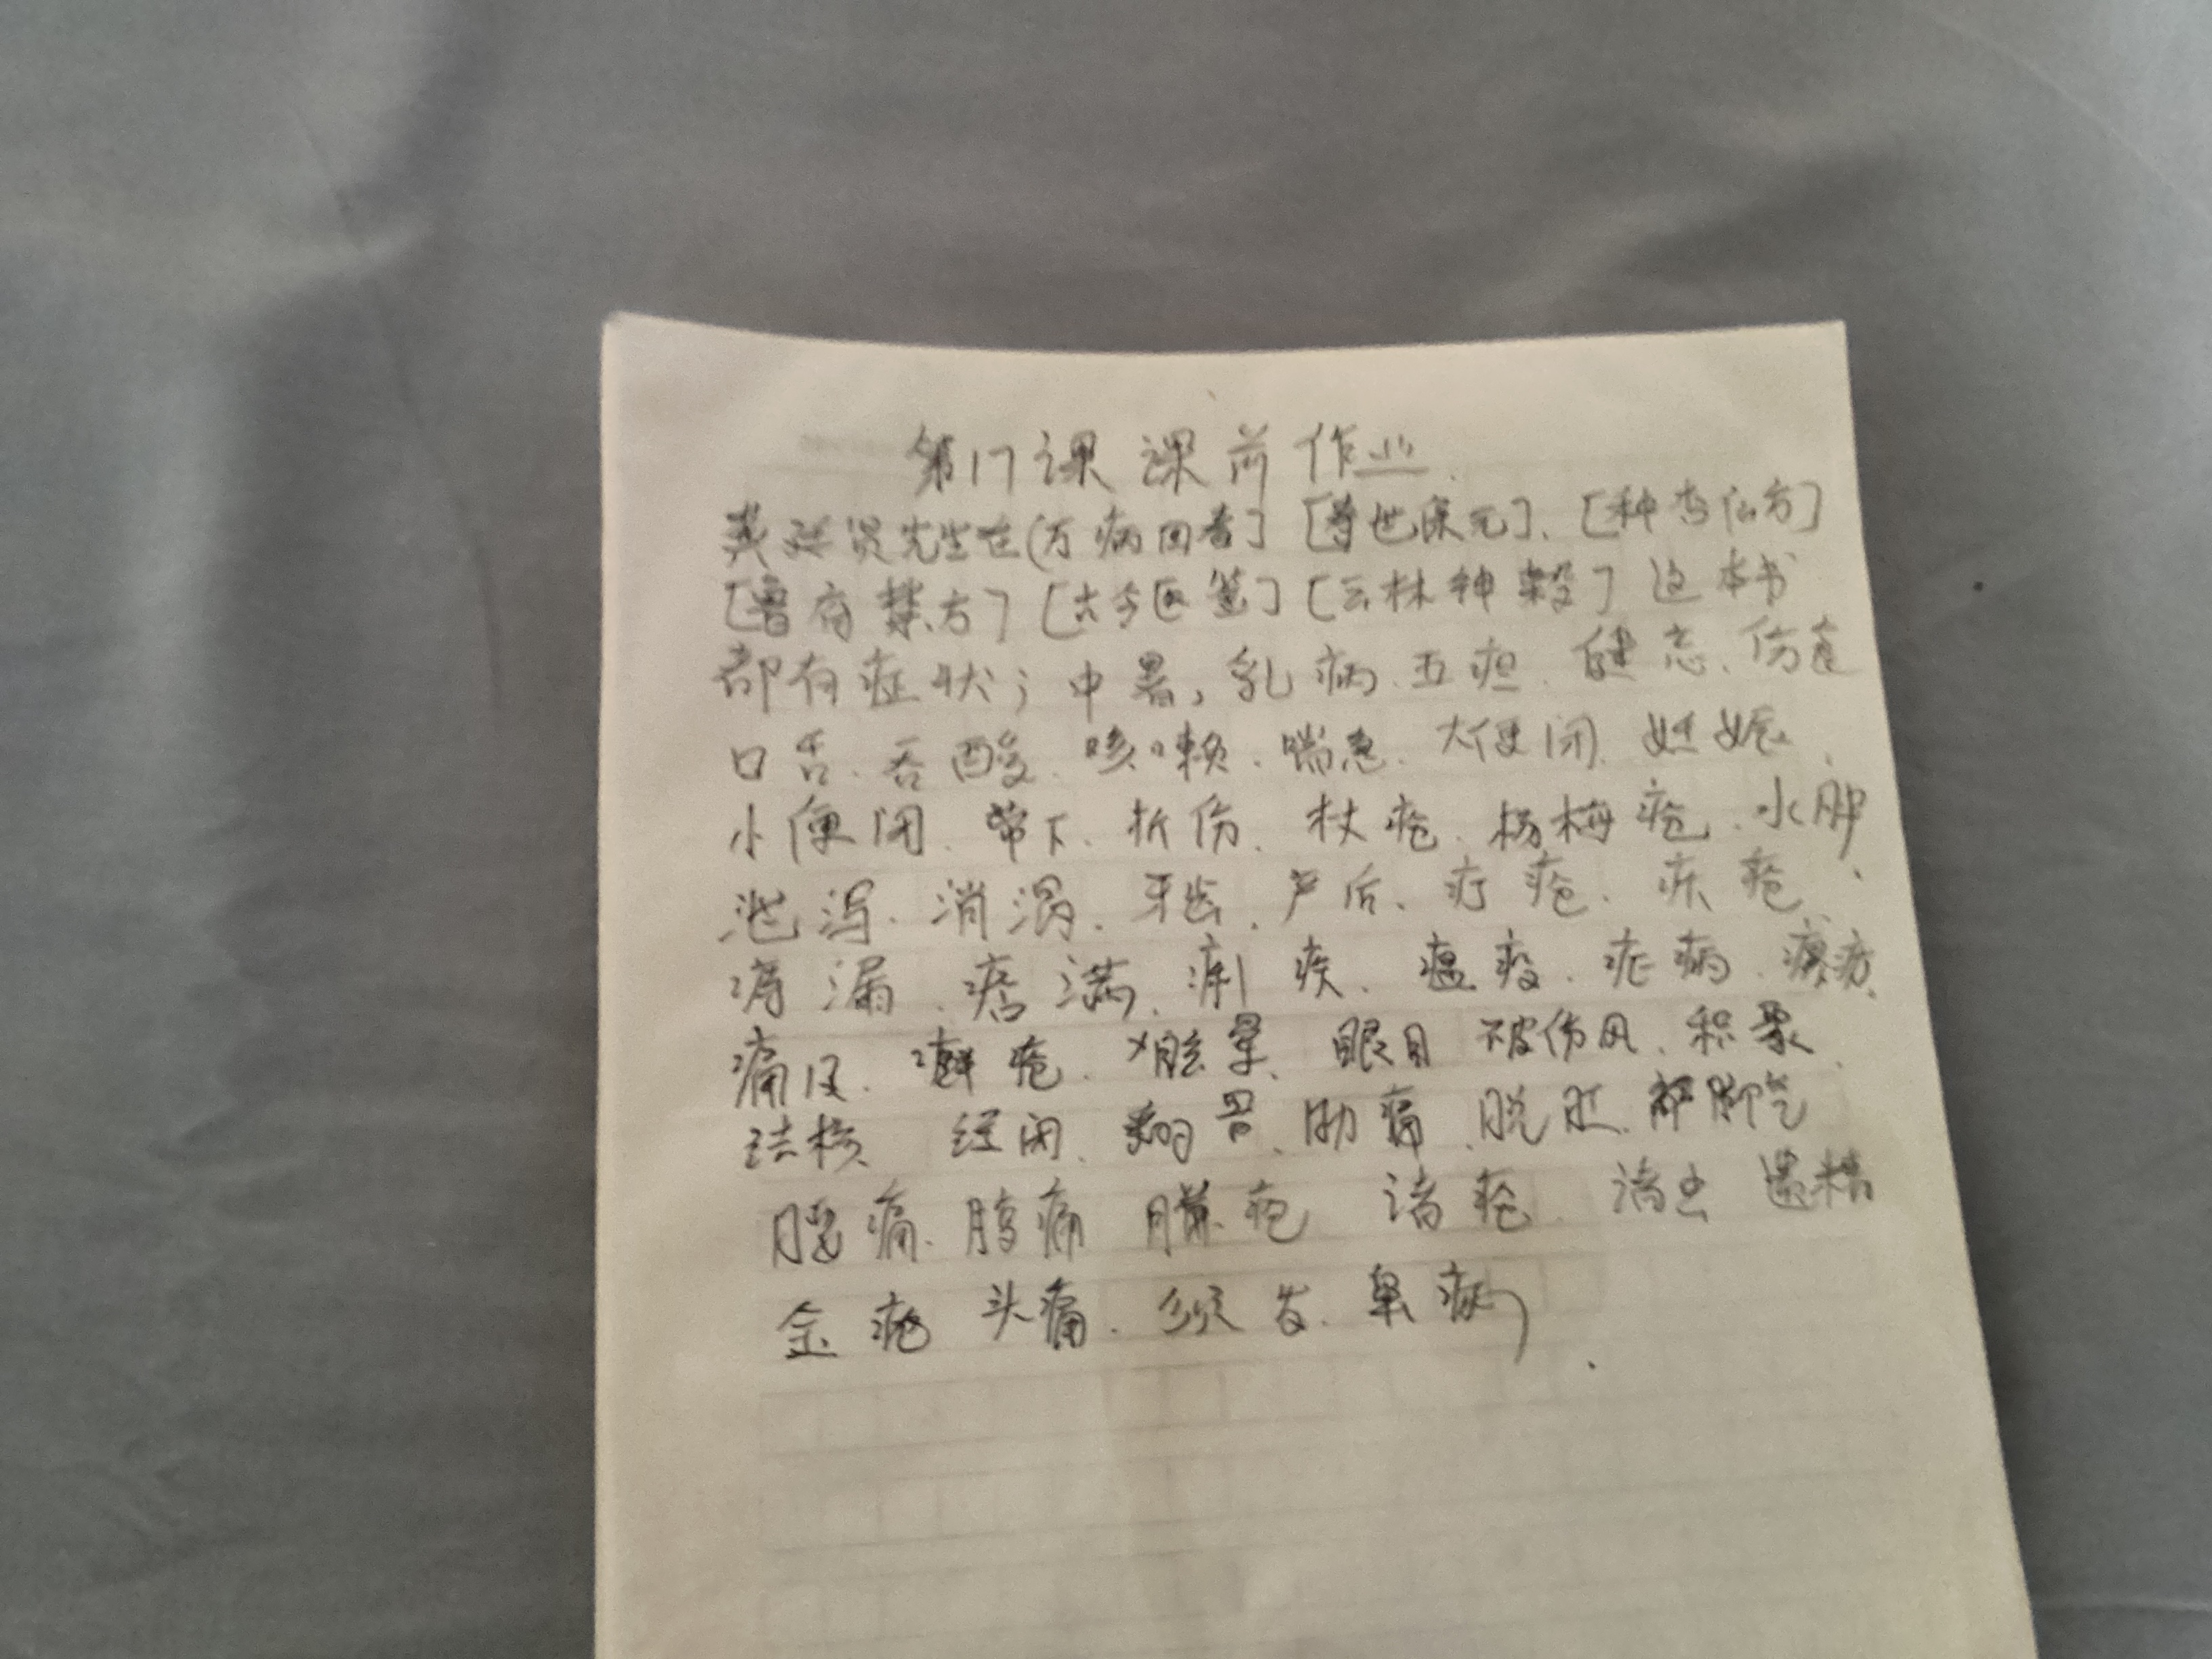 第17课 课前作业
龚廷贤先生在(万病回春] [寿世保元]、[种杏仙方]
[鲁府禁方] [古今医鉴] [云林神彀] 这本书
都有症状；中暑，乳病、五疸、健忘、伤食
口舌、吞酸、咳嗽、喘急、大便闭、妊娠、
小便闭、带下、折伤、杖疮、杨梅疮、水肿
泄泻、消渴、牙齿、产后、疔疮、疥疮、
痔漏、痞满、痢疾、瘟疫、疟病、瘰疬、
痛风、癣疮、眩晕、眼目 破伤风、积聚、
结核 经闭、翻胃、胁痛、脱肛、脚气
腰痛、腹痛 臁疮 诸疮、诸虫 遗精
金疮 头痛、须发、鼻病